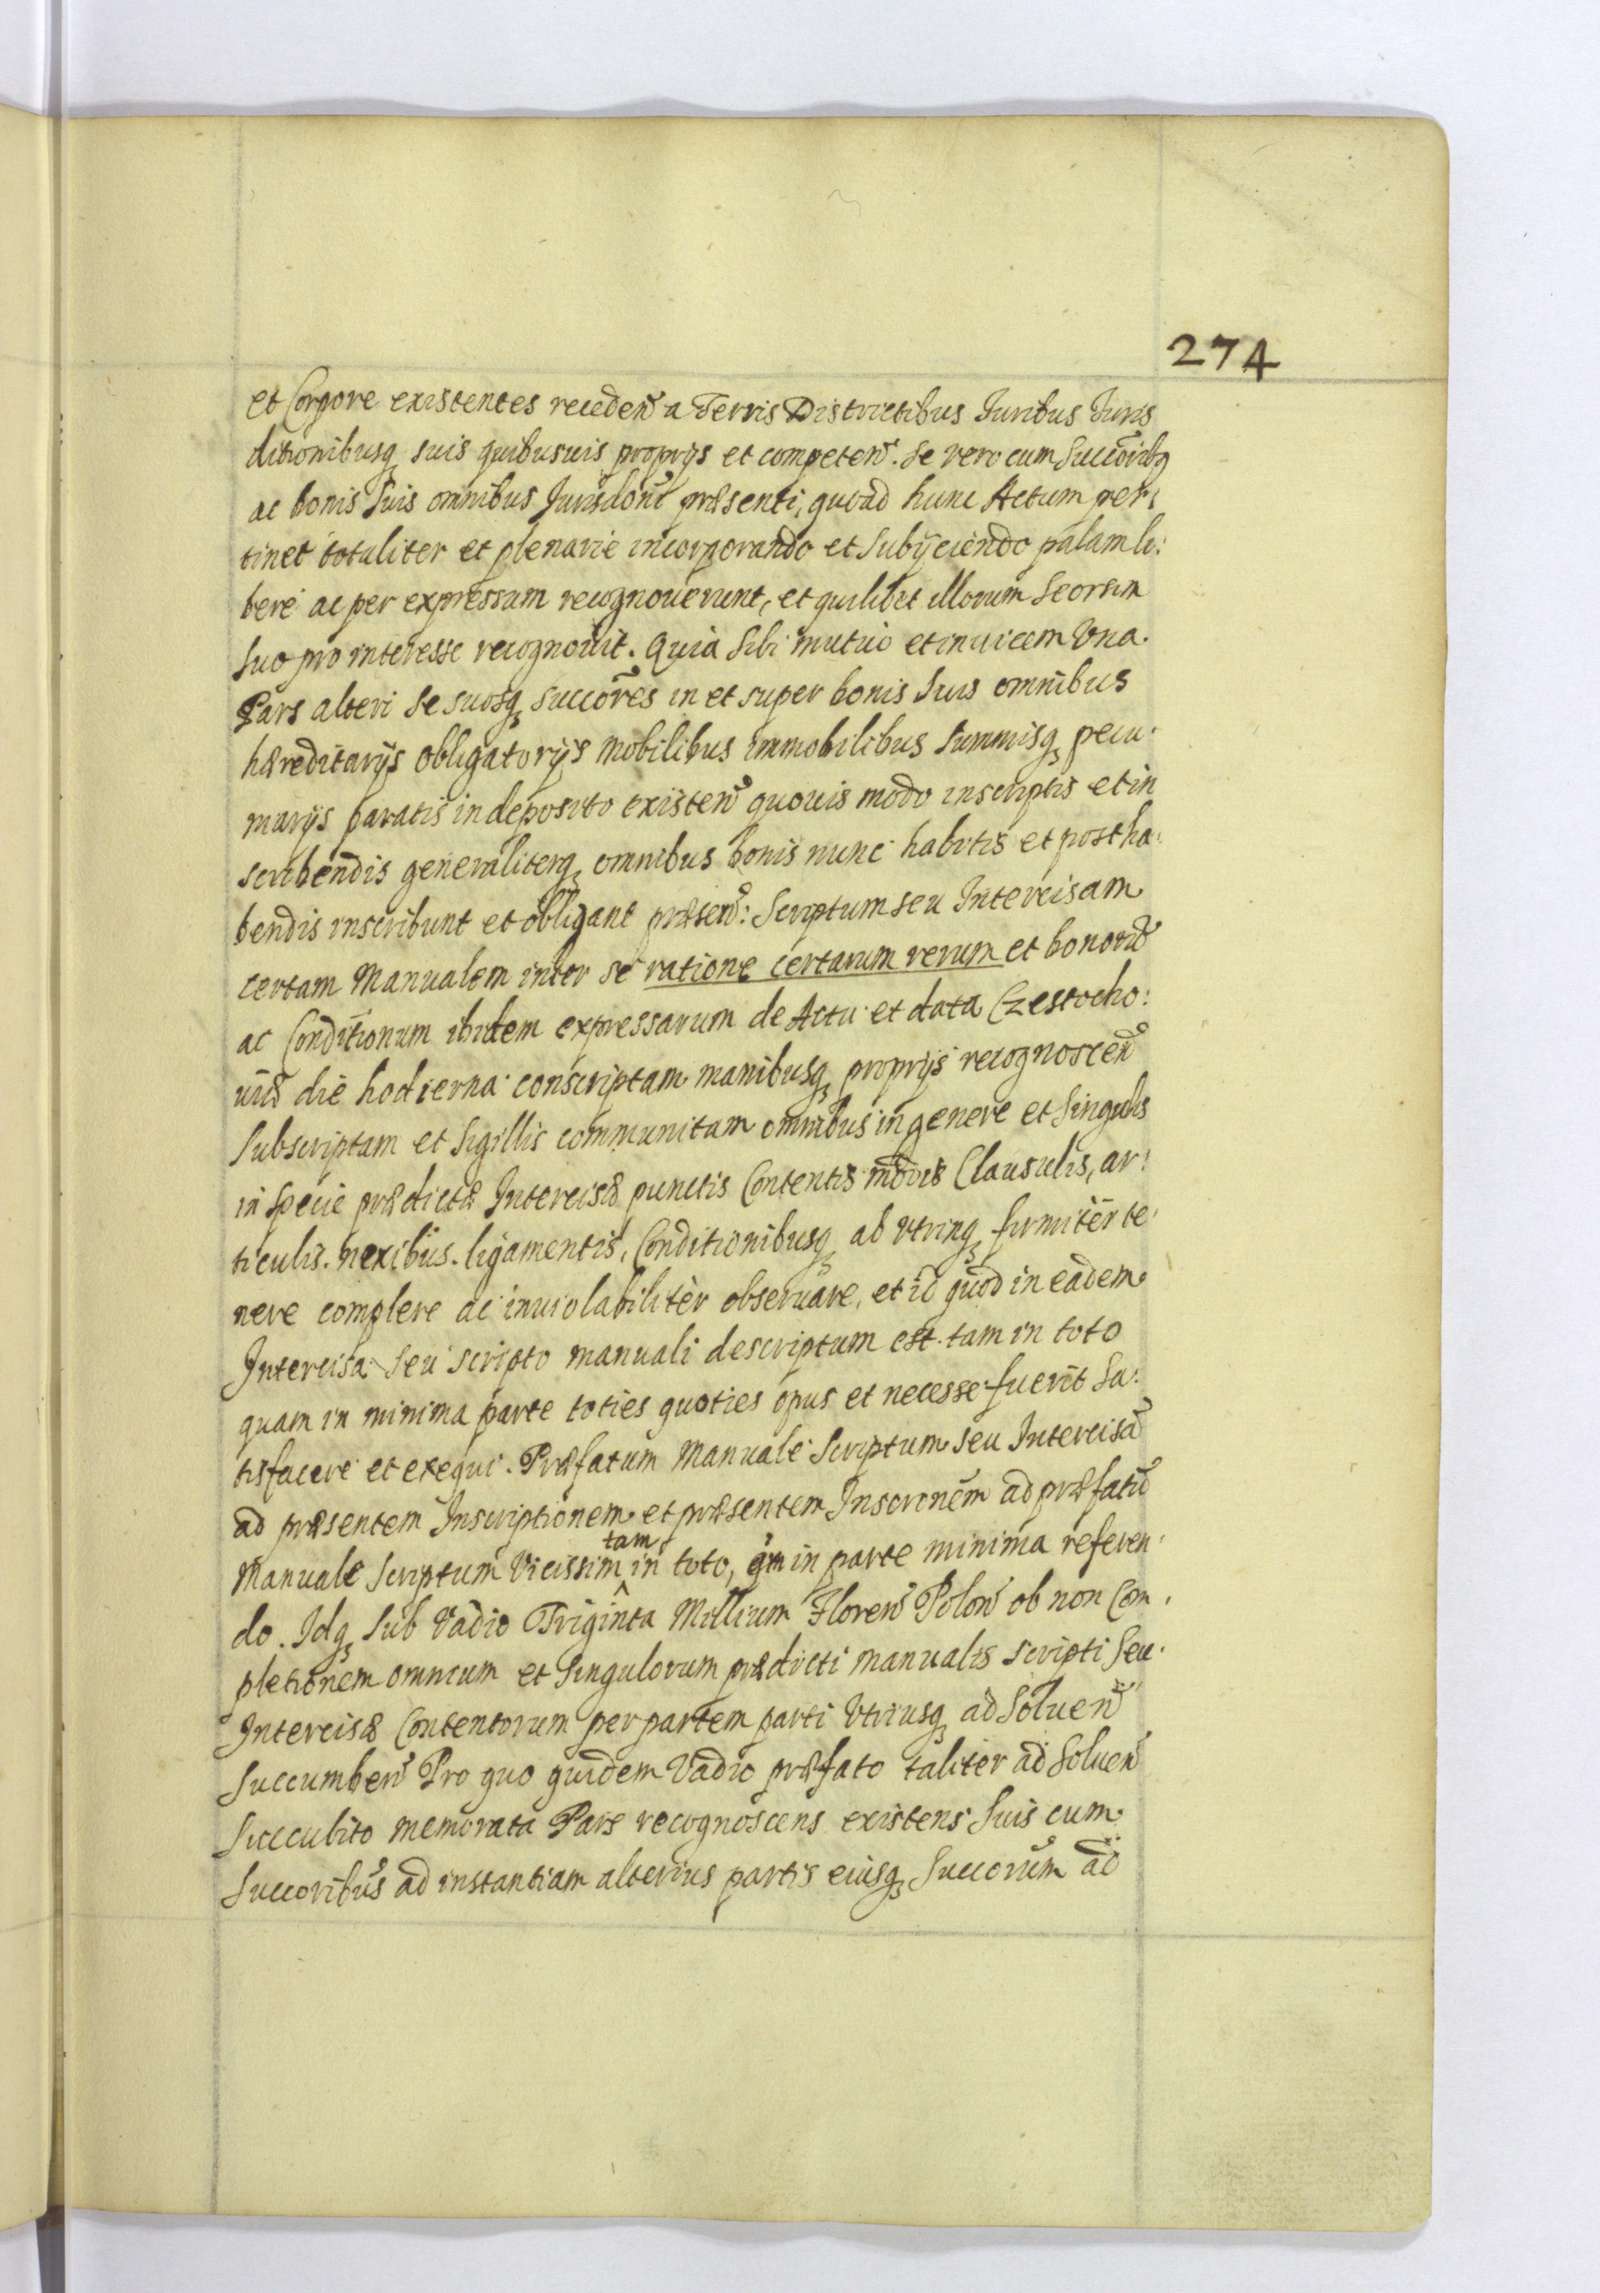 274
et Corpore existentes receden̄ a Terris Districtibus Juribus Juris
ditionibusq suis quibusuis proprijs et competen̄. Se vero cum Succōribq
ac bonis Suis omnibus Jurisdōni præsenti, quoad hunc Actum per:
tinet totaliter et plenarie incorporando et Subijciendo palam li:
bere ac per expressum recognouerunt, et quilibet illorum Seorsim
Suo pro interesse recognouit. Quia Sibi mutuo et inuicem Una
Pars alteri Se suosq succōres in et super bonis Suis omnibus
hæreditarijs obligatorijs mobilibus immobilibus Summisq pecu-
niarijs paratis in deposito existen̄ quouis modo inscriptis et in
scribendis generaliterq omnibus bonis nunc habitis et postha:
bendis inscribunt et obligant præsen̄: Scriptum seu Intercisam
certam Manualem inter se ratione certarum rerum et bonorū
ac Conditionum ibidem expressarum de Actu et data Czestocho:
uiæ die hodierna conscriptam manibusq proprijs recognoscen̄
Subscriptam et Sigillis communitam omnibus in genere et Singulis
in Specie prædictæ Intercisæ punctis Contentis modis Clausulis, ar:
ticulis. nexibus. ligamentis, Conditionibusq ab vtrinq firmiter te:
nere complere ac inuiolabiliter obseruare, et id quod in eadem
Intercisa Seu scripto manuali descriptum est tam in toto
quam in minima parte toties quoties opus et necesse fuerit Sa:
tisfacere et exequi. Præfatum Manuale Scriptum seu Intercisā
ad præsentem Inscriptionem et præsentem Inscrōnem ad præfatū
tam
Manuale Scriptum Vicissim in toto, qm in parte minima referen-
do. Idq Sub Vadio Triginta Millium Floren̄ Polon̄ ob non Com-
pletionem omnium et Singulorum prædicti manualis scripti Seu
Intercisæ Contentorum per partem parti Vtriusq ad Soluen̄
Succumben̄ Pro quo quidem Vadio præfato taliter ad Soluen̄
Succubito memorata Pars recognoscens existens Suis cum
Succoribus ad instantiam alterius partis eiusq Succorum ad